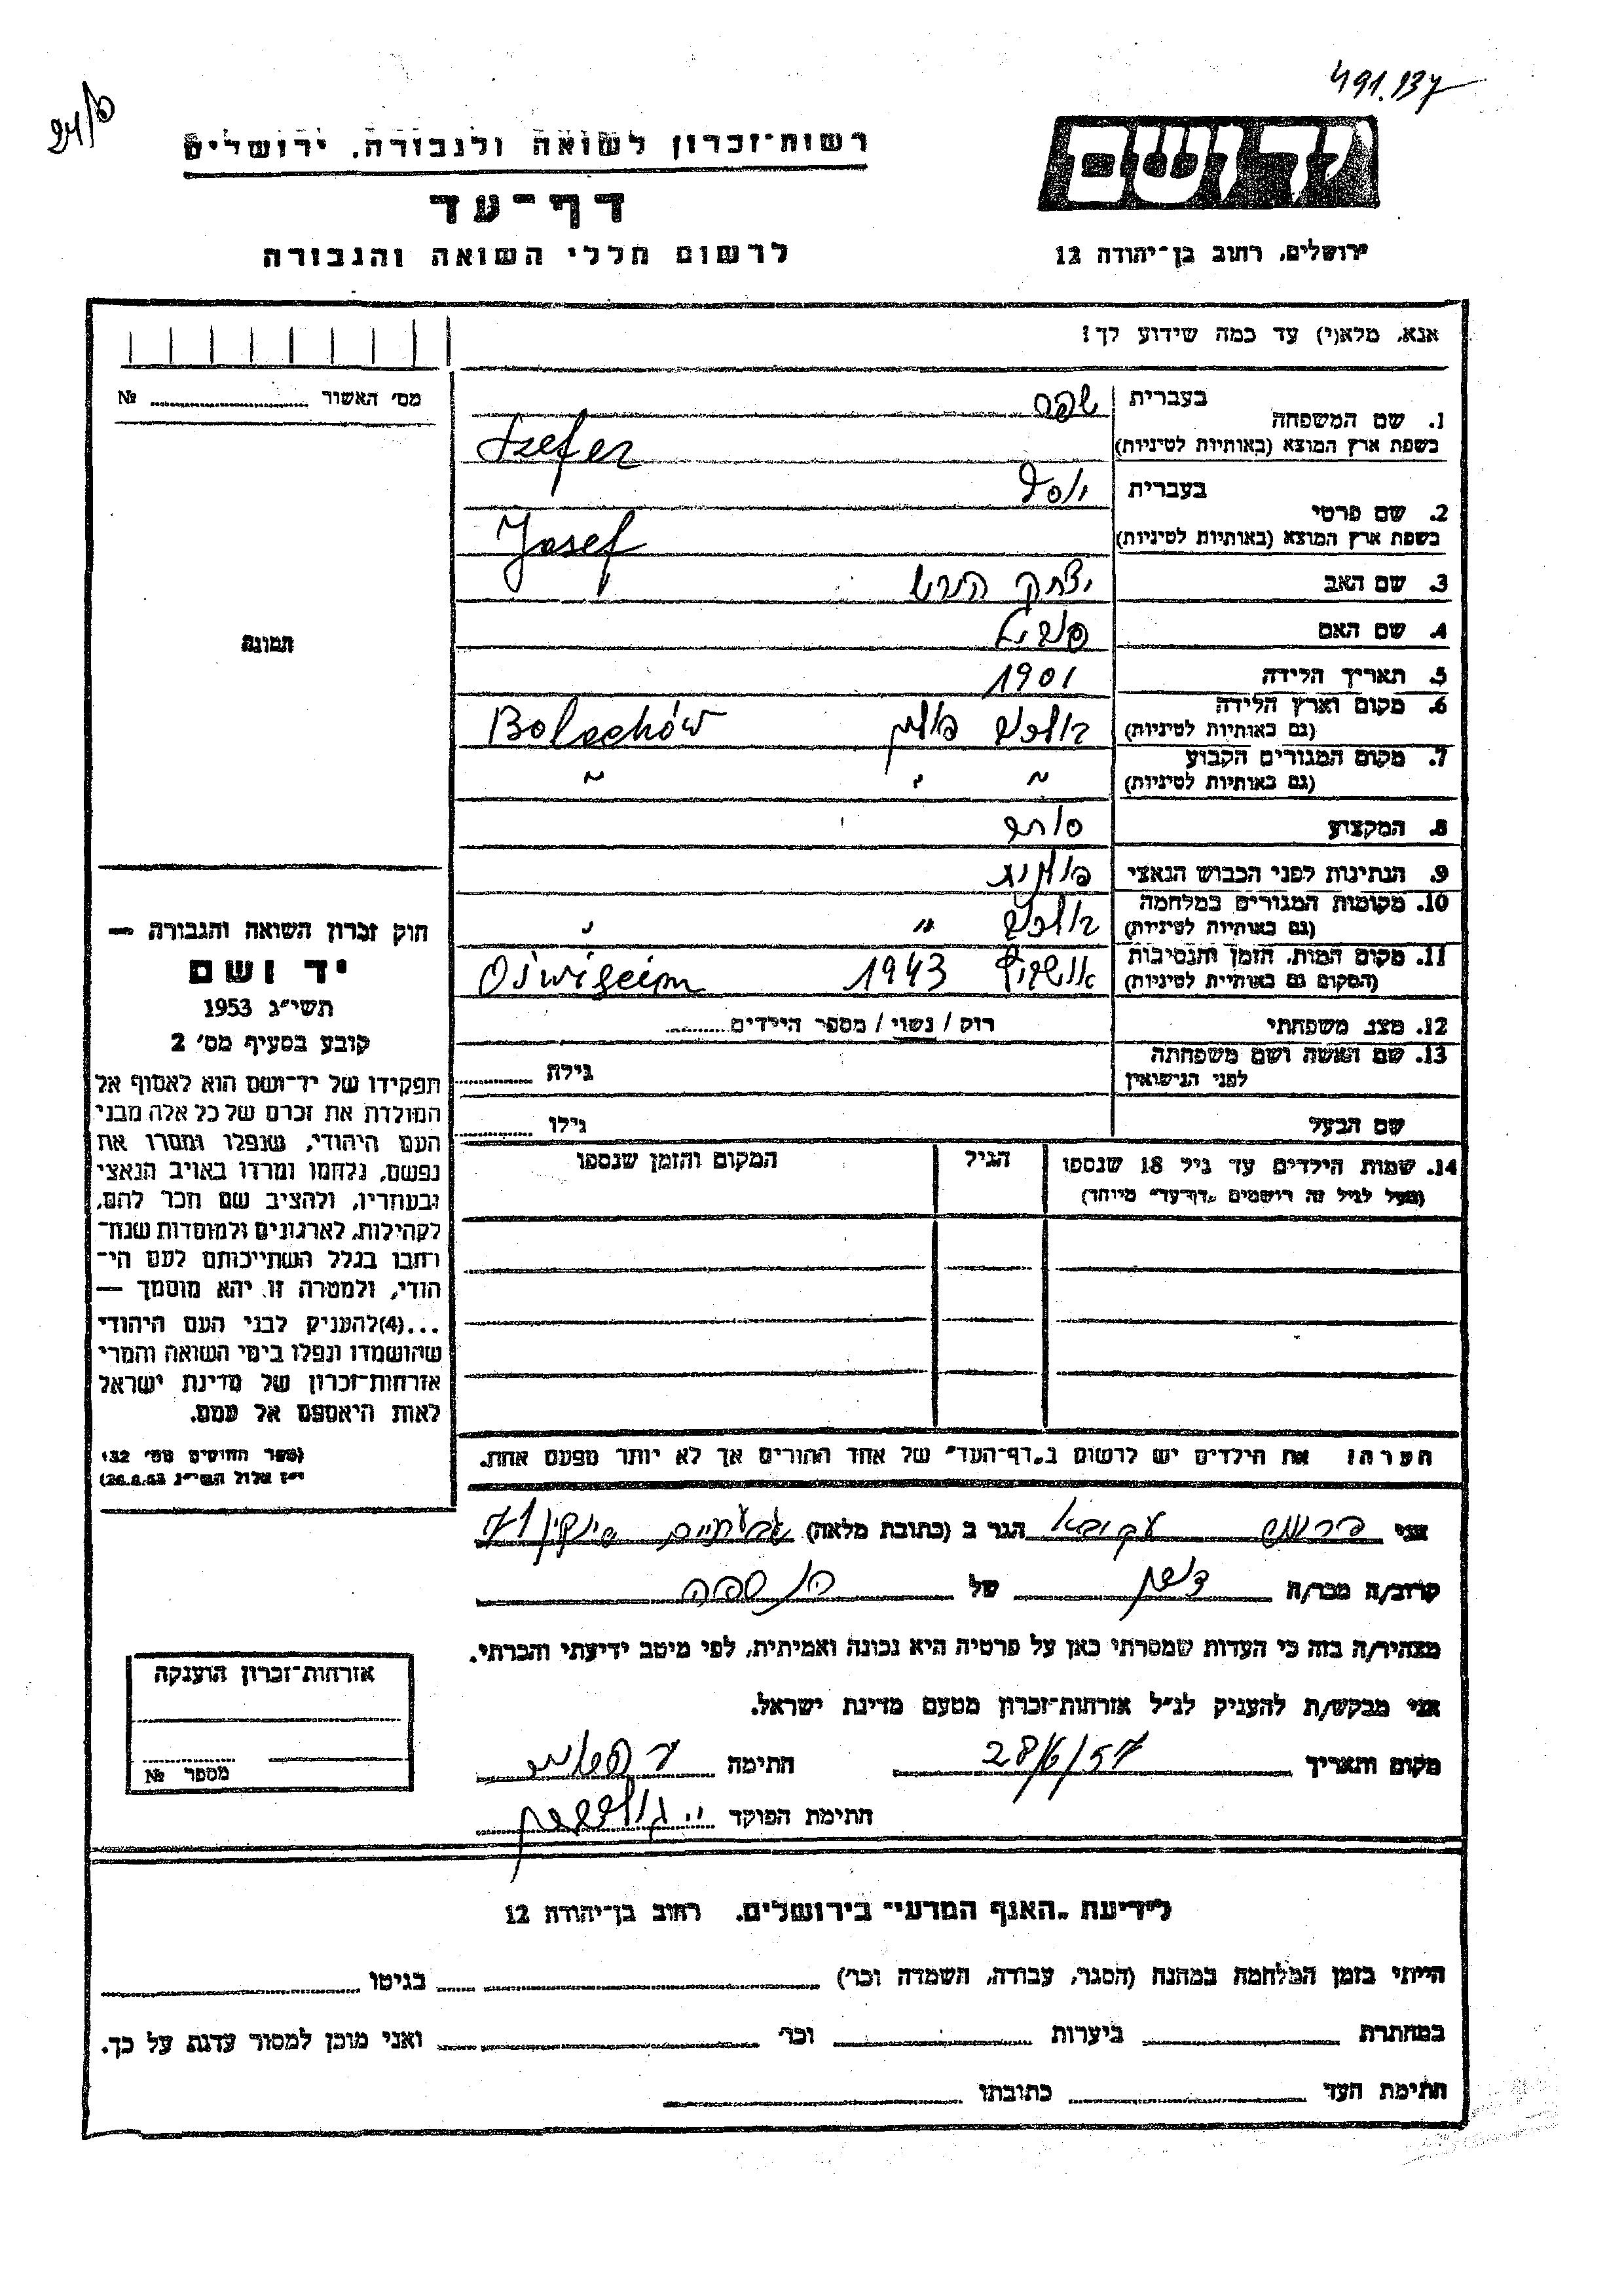 491.137
24/6
רשות־זכרון לשואה ולגבורה, ירושלים
דף־עד
לרשום חללי השואה והגבורה
יד ושם
ירושלים, רחוב בן־יהודה 12
אנא, מלא(י) עד כמה שידוע לך!
מס׳ האשור № 
1. שם המשפחה בעברית שפר
בשפת ארץ המוצא (באותיות לטיניות) Szefer
2. שם פרטי בעברית יוסף
בשפת ארץ המוצא (באותיות לטיניות) Josef
3. שם האב יצחק הירש
4. שם האם
5. תאריך הלידה 1901
6. מקום וארץ הלידה (גם באותיות לטיניות) בולחוב פולין Bolechów
7. מקום המגורים הקבוע (גם באותיות לטיניות) " " "
8. המקצוע סוחר
9. הנתינות לפני הכבוש הנאצי פולנית
10. מקומות המגורים במלחמה (גם באותיות לטיניות) בולחוב " "
11. מקום המות, הזמן והנסיבות (המקום גם באותיות לטיניות) אושוויץ 1943 Oświęcim
12. מצב משפחתי רוק / נשוי / מספר הילדים
13. שם האשה ושם משפחתה לפני הנישואין גילה
שם הבעל גילו
14. שמות הילדים עד גיל 18 שנספו הגיל המקום והזמן שנספו
(מעל לגיל זה רושמים „דף־עד״ מיוחד)
תמונה
חוק זכרון השואה והגבורה —
יד ושם
תשי״ג 1953
קובע בסעיף מס׳ 2
תפקידו של יד־ושם הוא לאסוף אל
המולדת את זכרם של כל אלה מבני
העם היהודי, שנפלו ומסרו את
נפשם, נלחמו ומרדו באויב הנאצי
ובעוזריו, ולהציב שם וזכר להם,
לקהילות, לארגונים ולמוסדות שנח־
רבו בגלל השתייכותם לעם הי־
הודי, ולמטרה זו יהא מוסמך —
...(4)להעניק לבני העם היהודי
שהושמדו ונפלו בימי השואה והמרי
אזרחות־זכרון של מדינת ישראל
לאות היאספם אל עמם.
(ספר החוקים מס׳ 132
י״ז אלול תשי״ג 26.8.53)
הערה! את הילדים יש לרשום ב„דף־העד״ של אחד ההורים אך לא יותר מפעם אחת.
אני עקיבא הגר ב (כתובת מלאה) גבעתיים
קרוב/ה מכר/ה של
מצהיר/ה בזה כי העדות שמסרתי כאן על פרטיה היא נכונה ואמיתית, לפי מיטב ידיעתי והכרתי.
אני מבקש/ת להעניק לנ״ל אזרחות־זכרון מטעם מדינת ישראל.
מקום ותאריך 28/6/57 חתימה
חתימת הפוקד
אזרחות־זכרון הוענקה
מספר №
לידיעת „האגף המדעי״ בירושלים, רחוב בן־יהודה 12
הייתי בזמן המלחמה במחנה (הסגר, עבודה, השמדה וכו׳) בגיטו
במחתרת ביערות וכו׳ ואני מוכן למסור עדות על כך.
חתימת העד כתובתו